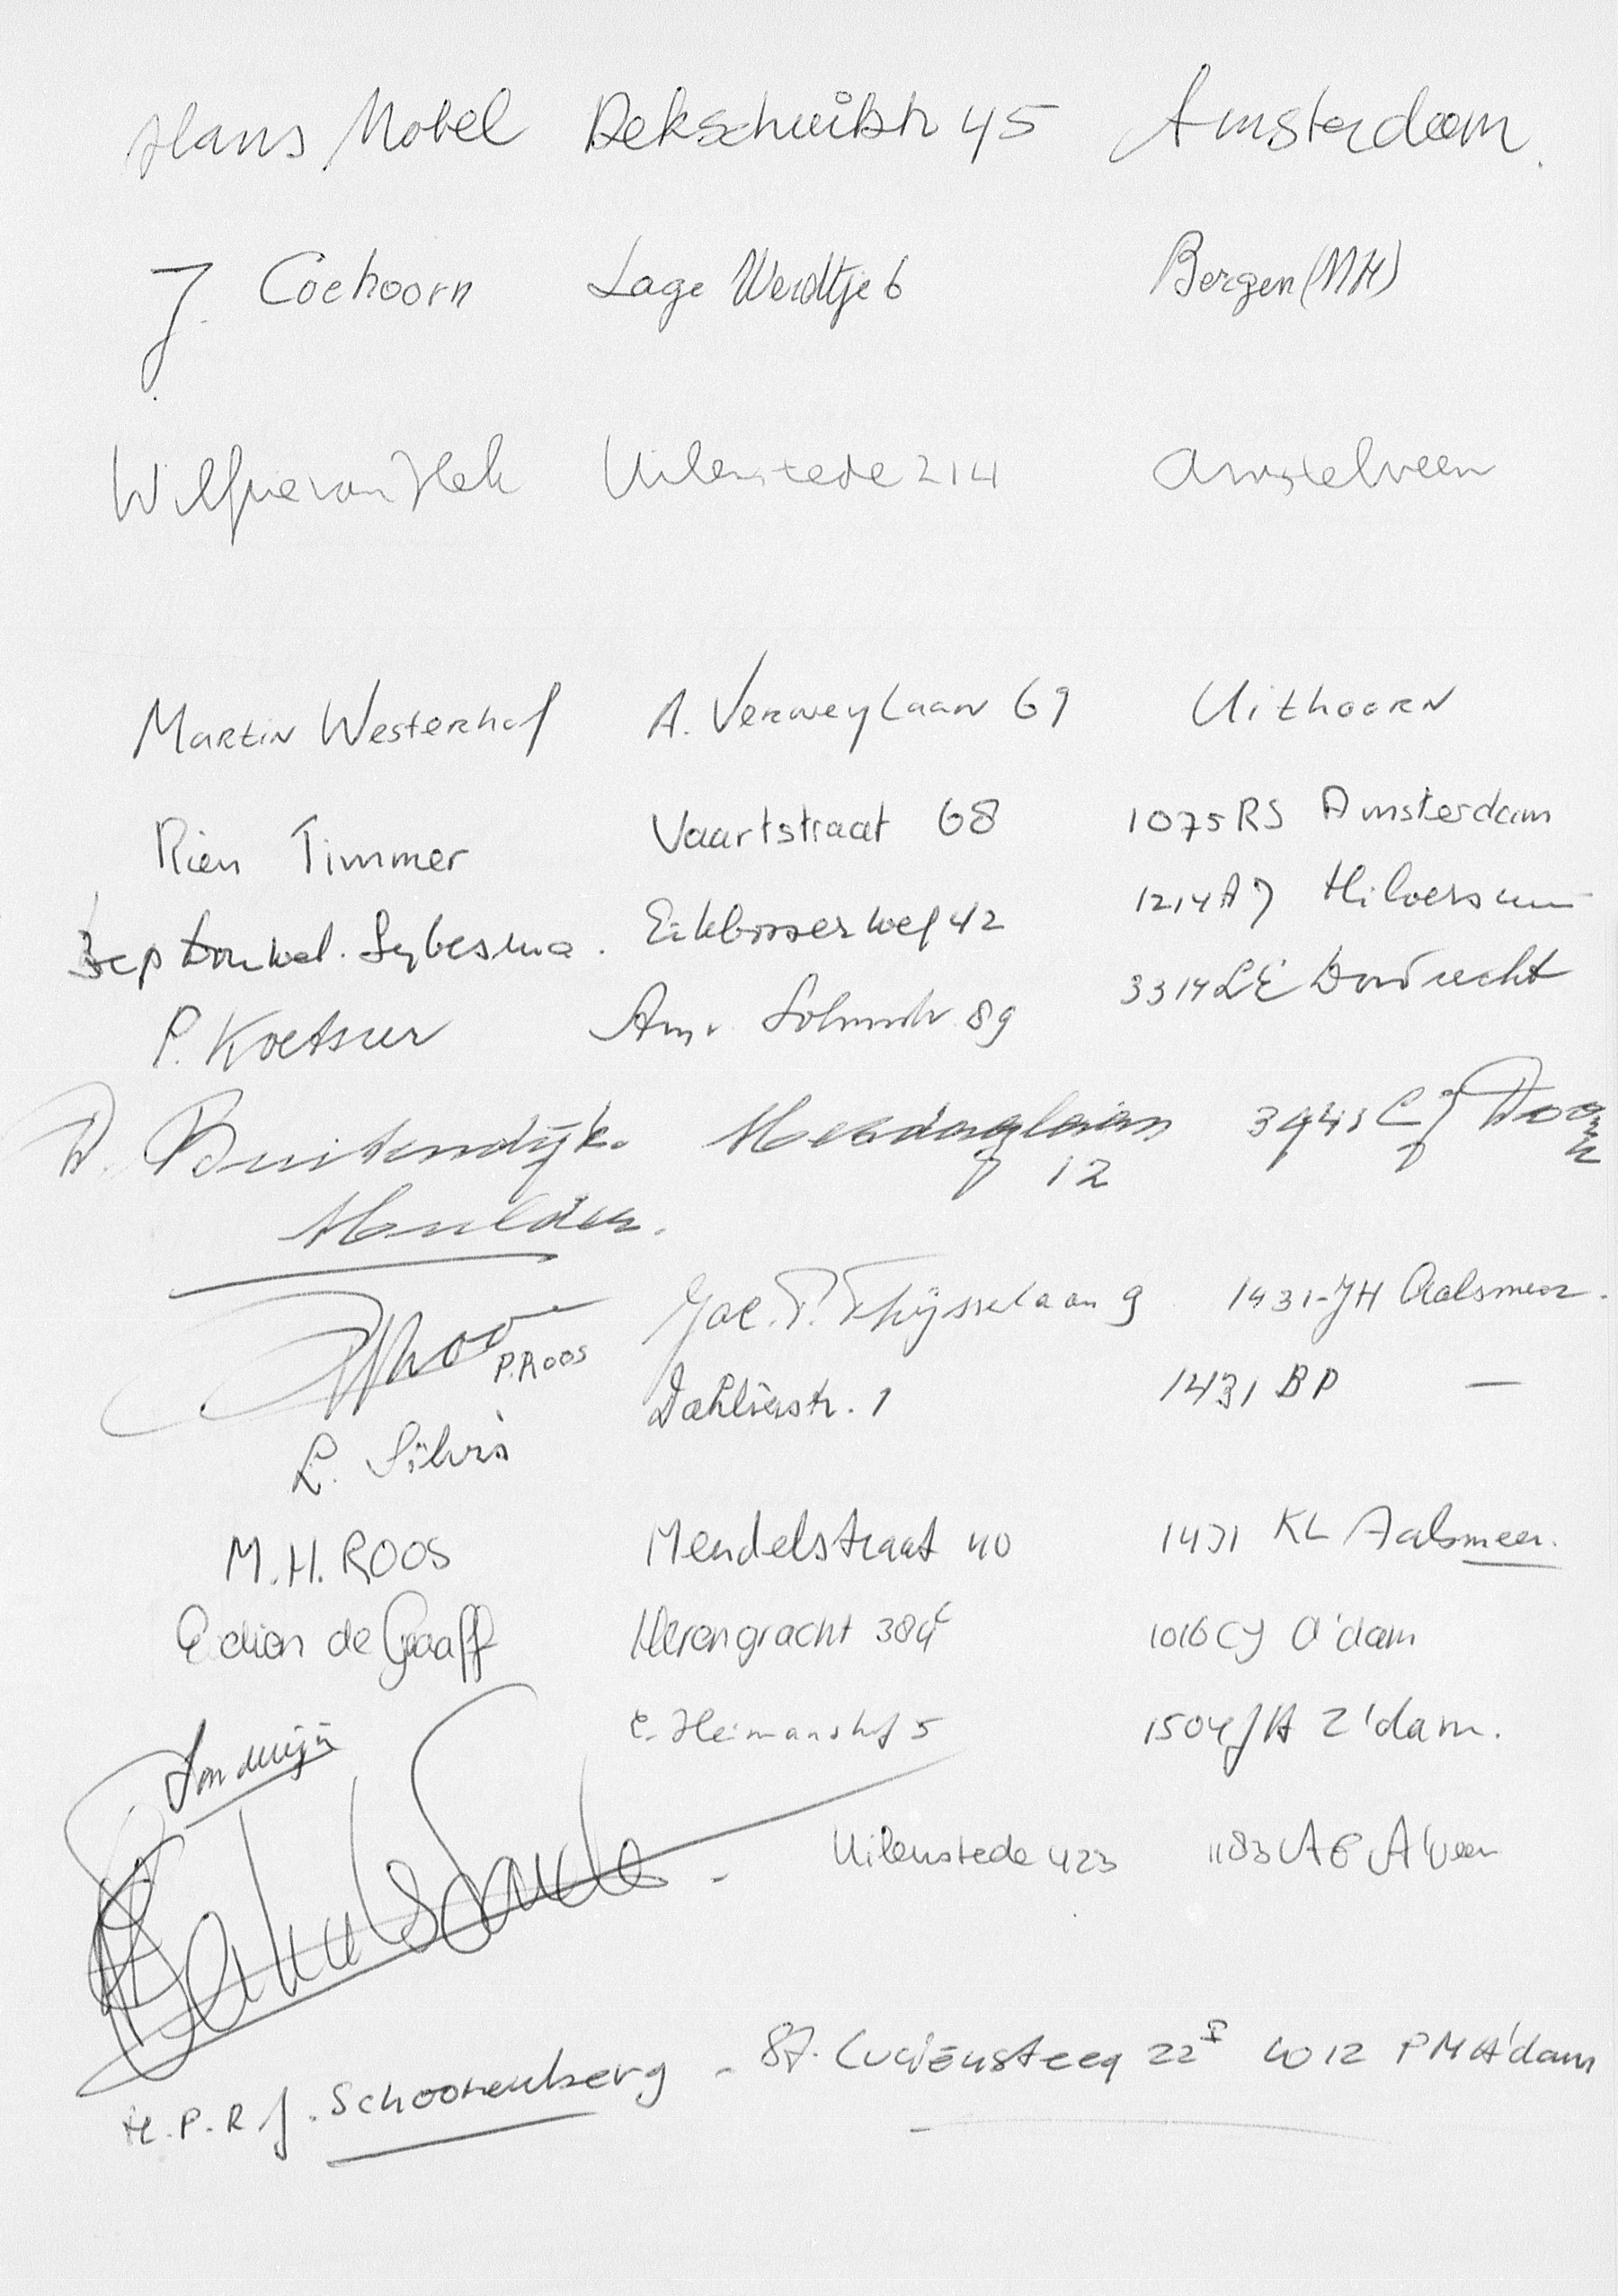 Hans Mobel Dekschuitstr 45 Amsterdam.
J. Coehoorn Lage Weidtje 6 Bergen (NH)
Wilfrie van Hek Uilenstede 214 Amstelveen
Martin Westerhof A. Verweylaan 69 Uithoorn
Rien Timmer Vaartstraat 68 1075 RS Amsterdam
Sybesma. Eikbosserweg 42 1214 AJ Hilversum
P. Koetsier 89 3314 LE Dordrecht
D. Buitendijk- Mesdaglaan 12 3941 CJ Doorn
Mulder.
P. ROOS Jac. P. Thijsselaan 9 1431-JH Aalsmeer.
L. Silvis Dahliastr. 1 1431 BP —
M.H. ROOS Mendelstraat 40 1431 KL Aalsmeer.
Edian de Graaff Herengracht 384c 1016 CJ A'dam
E. Heimanshof 5 1504 JA Z'dam.
Uilenstede 423 1183 AE A'veen
H.P.R.J. Schoonenberg - St. Luciënsteeg 22 I 1012 PM A'dam